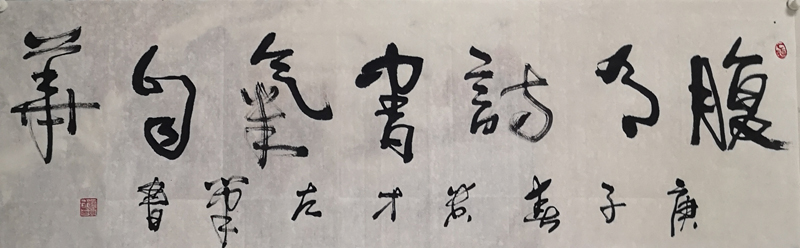 腹有詩書氣自華
庚子春才左筆書